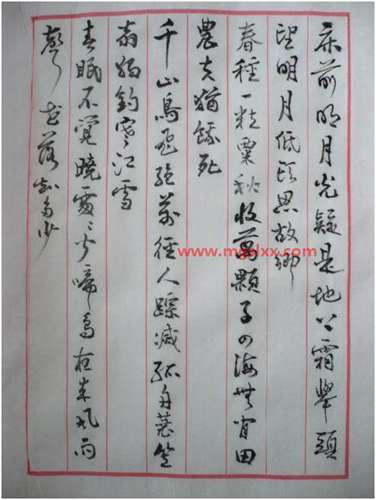 床前明月光疑是地上霜舉頭
望明月低頭思故鄉
春種一粒粟秋收萬顆子四海無閒田
農夫猶餓死
千山鳥飛絕萬徑人蹤滅孤舟蓑笠
翁獨釣寒江雪
春眠不覺曉處〻聞啼鳥夜來風雨
聲花落知多少